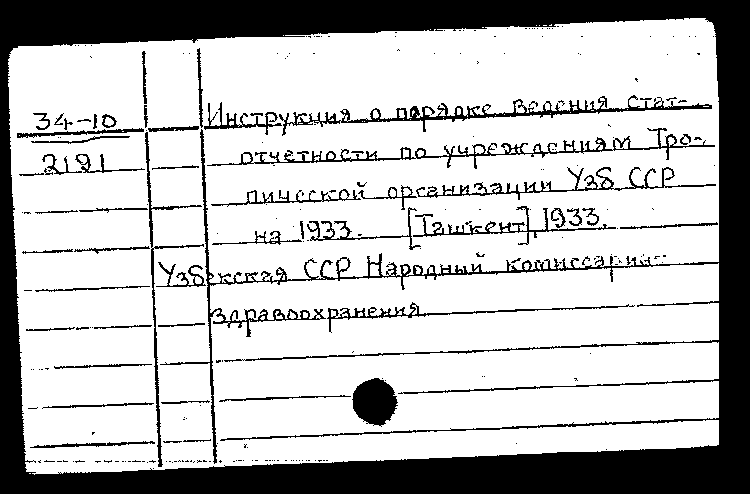 34-10
2191
Инструкция о порядке ведения стат-
отчетности по учреждениям Тро-
пической организации Узб ССР
на 1933. [Ташкент], 1933.
Узбекская ССР Народный комиссариат
здравоохранения